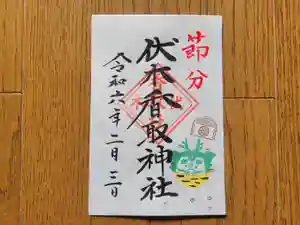 節分
伏木香取神社
令和六年二月三日